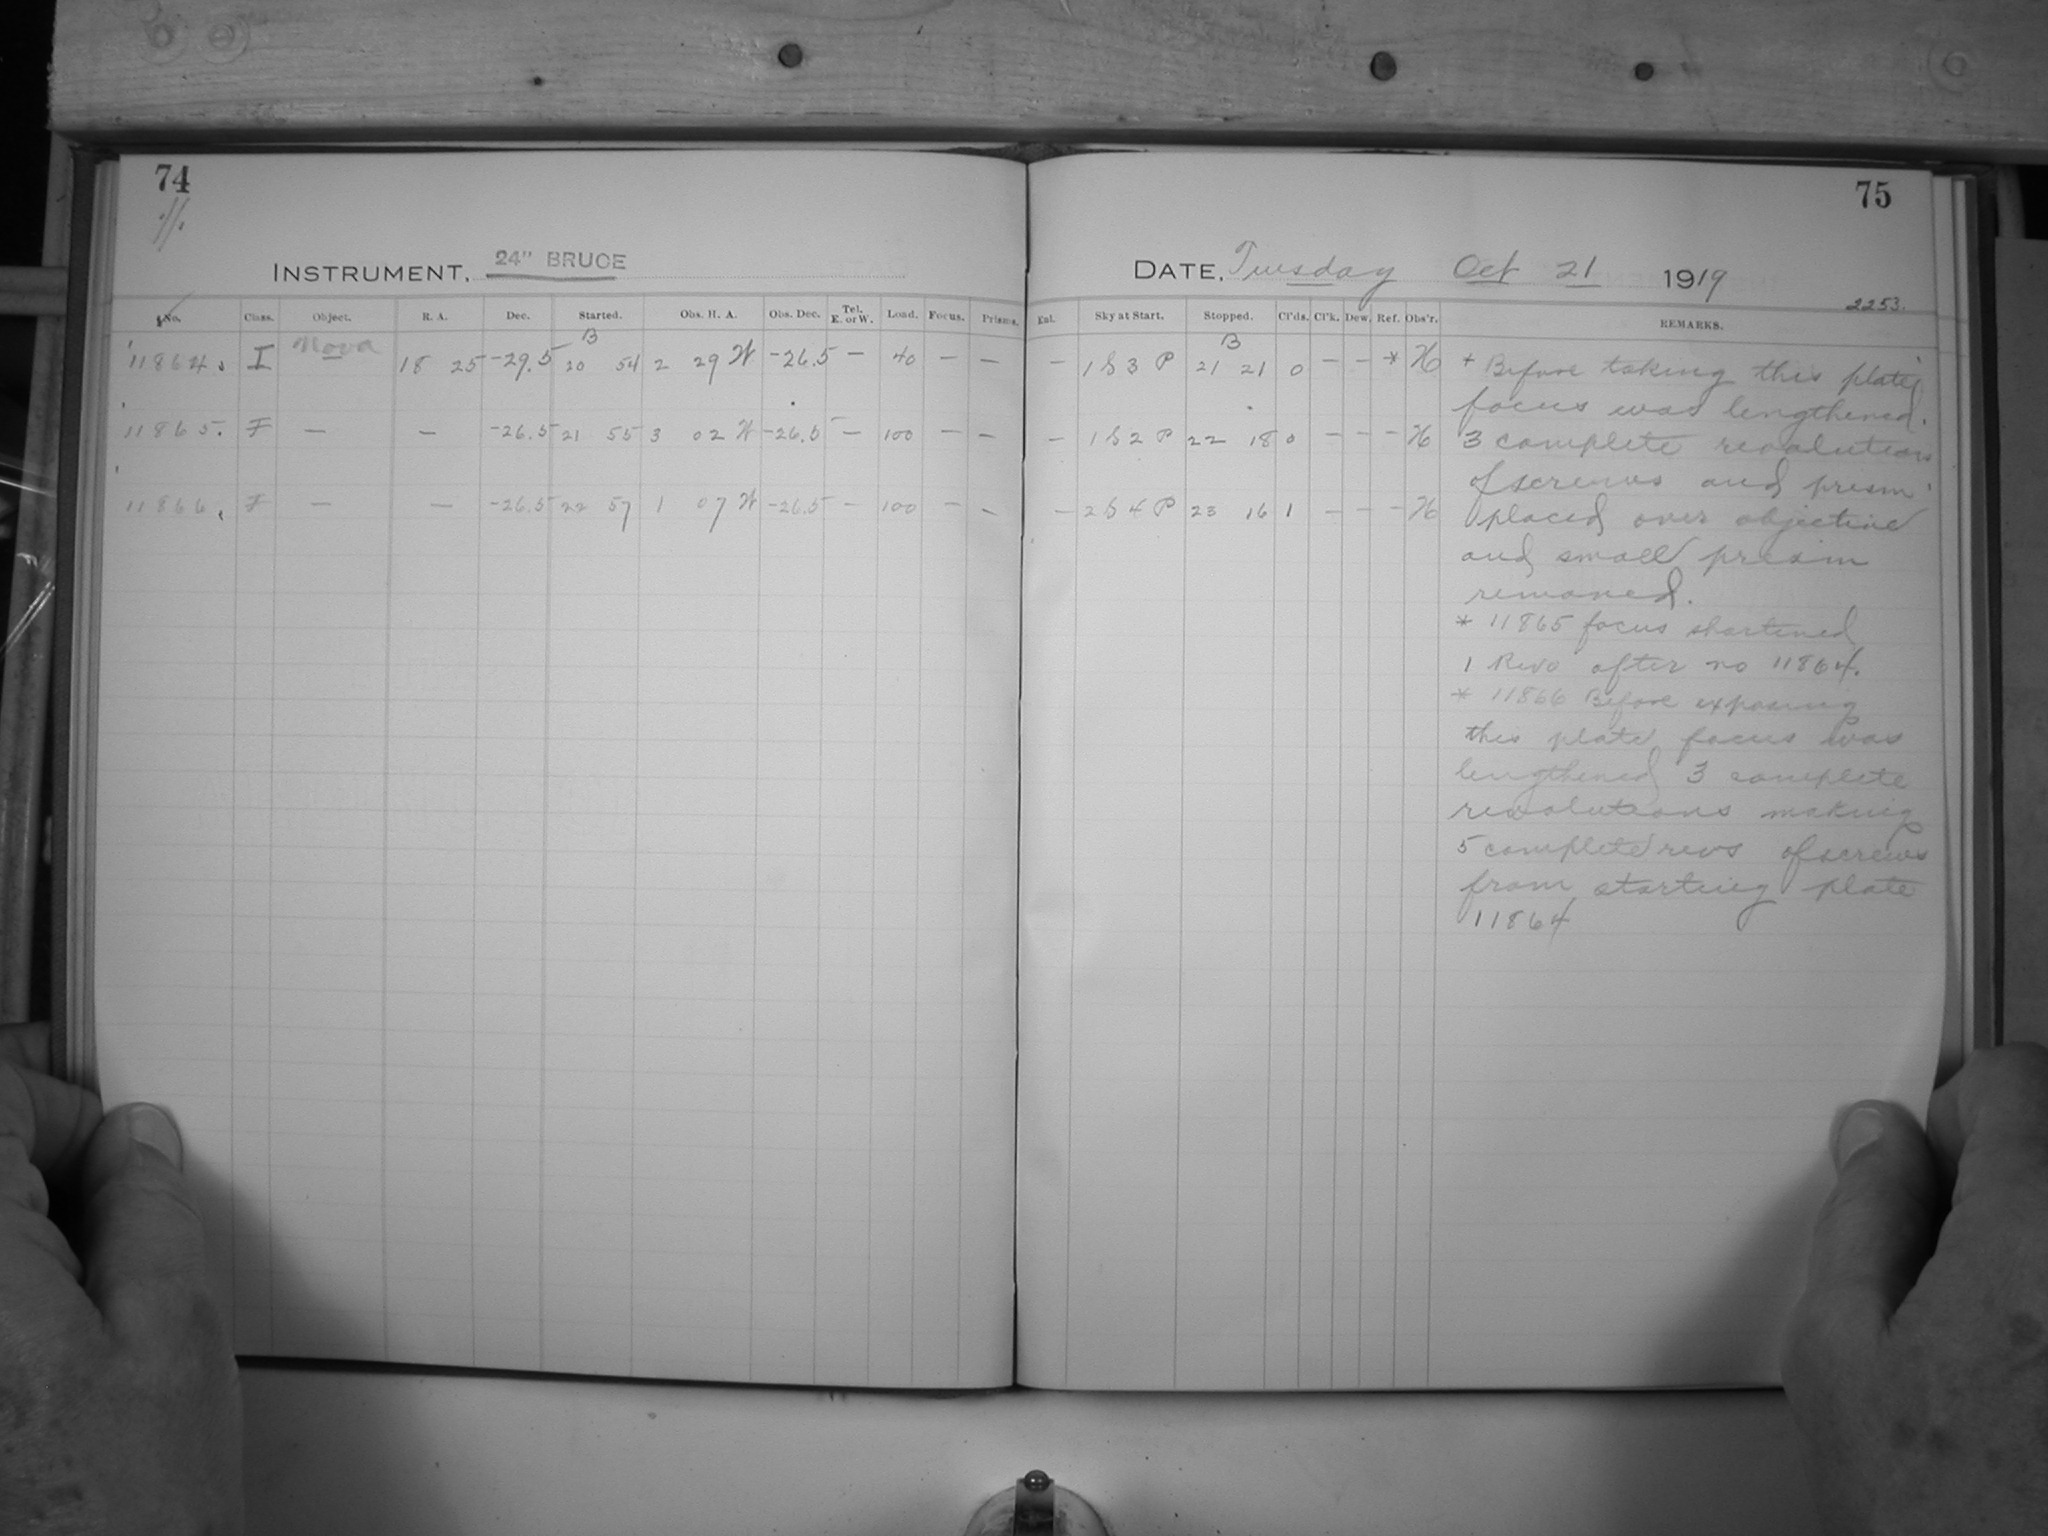 74
75
INSTRUMENT, 24" BRUCE
DATE, Tuesday Oct 21 1919
2253.
No. Class. Object. R. A. Dec. Started. Obs. H. A. Obs. Dec. Tel. E. or W. Load. Focus. Prisms. Enl. Sky at Start. Stopped. Cl'ds. Cl'k. Dew. Ref. Obs'r. REMARKS.
B B
11864. I Nova 18 25 -29.5 20 54 2 29 W -26.5 — 40 — — — 1 S 3 P 21 21 0 — — * H
11865. F — — -26.5 21 55 3 02 W -26.5 — 100 — — — 1 S 2 P 22 18 0 — — — H
11866. F — — -26.5 22 57 1 07 W -26.5 — 100 — — — 2 S 4 P 23 16 1 — — — H
* Before taking this plate
focus was lengthened.
3 complete revolutions
of screws and prism
placed over objective
and small prism
removed.
* 11865 focus shortened
1 Revo after no 11864.
* 11866 Before exposing
this plate focus was
lengthened 3 complete
revolutions making
5 complete revs of screws
from starting plate
11864